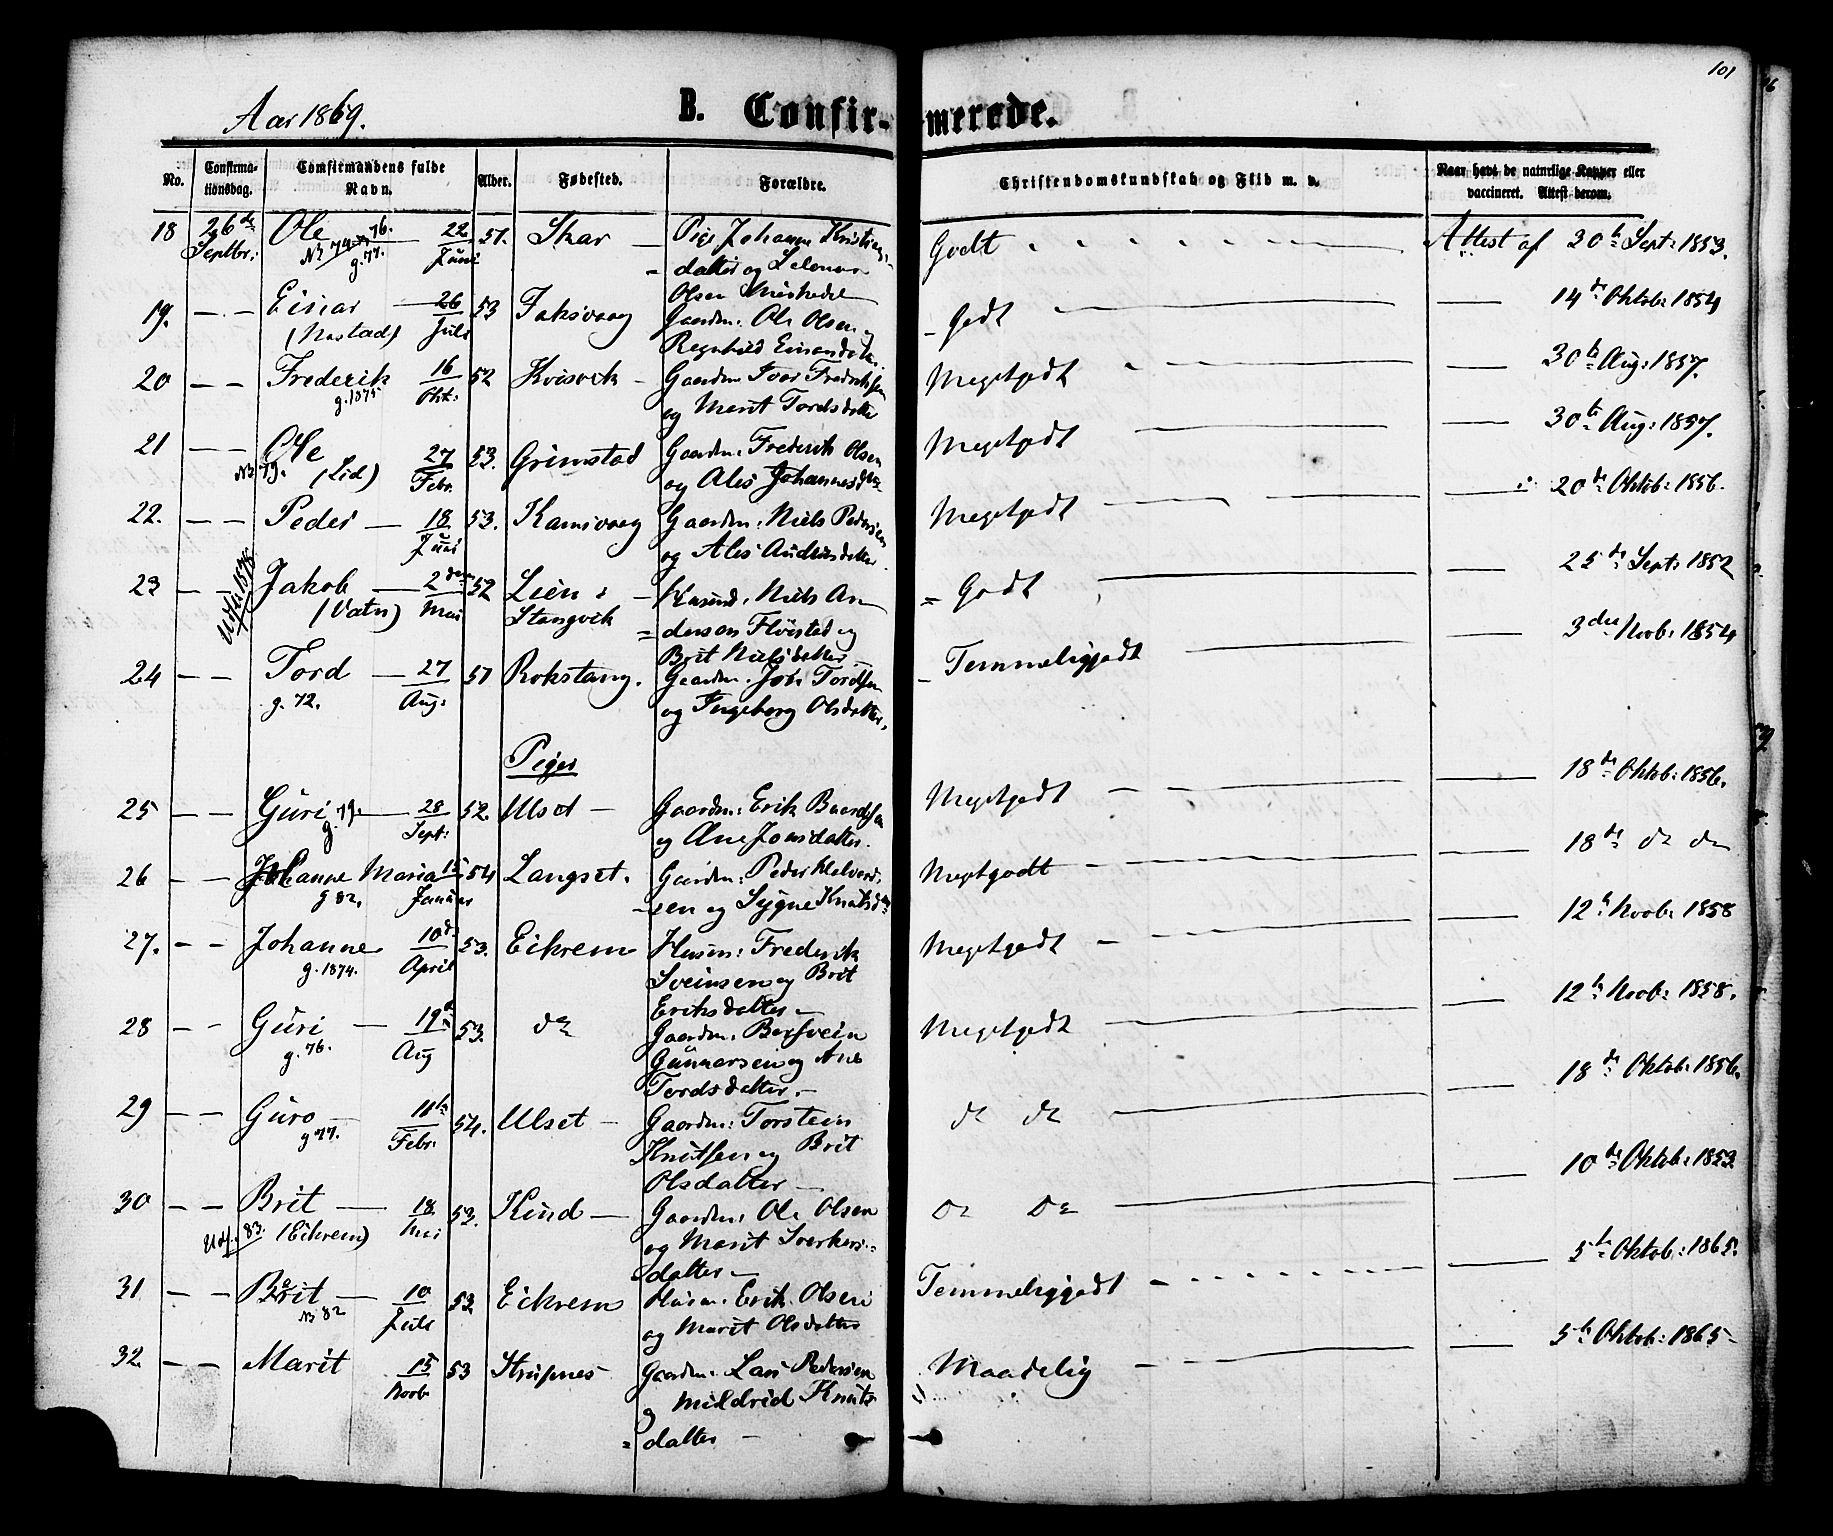 101
Aar 1869.
B. Confirmerede.
No.
Confirmationsdag.
Comfirmandens fulde Navn.
Alder.
Fødested.
Forældre.
Christendomskundskab og Flid m. v.
Naar havt de naturlige Kopper eller vaccineret. Attest derom.
18 26de Septbr: Ole 22 Juni 51. Skar Pige Johanne Kristens= Godt Attest af 20de Sept: 1853.
g. 77.
datter og
Olsen
19. — — Einar (Nastad) 26 Juli 53 Gaardm: Ole Olsen og Godt — 14de Oktob: 1854
Regnhild
20 — — Frederik 16 Okt: 52 Kvisvik Gaardm Ivar Fredriksen Megetgodt — 30te Aug: 1857.
g. 1875
og Marit Tordsdatter
21 — — Ole (Lid) 27 Febr. 53. Grimstad Gaardm: Frederik Olsen Megetgodt — 30te Aug: 1857.
79.
og Ales Johannesd
22. — — Peder — 18 Juni 53. Gaardm: Niels Pedersen Megetgodt — 20de Oktob: 1856.
og Ales
23 — — Jakob (Vatn) 2den Mai 52 Lien i Stangvik Niels An= Godt — 25de Sept: 1852
dersen og
Brit Nielsdatter
24 — — Tord — 27 Aug: 51 Rokstang. Gaardm. John Tordsen Temmeliggodt — 3die Novb: 1854
g. 72.
og Ingeborg Olsdatter.
Piger
25 — — Guri 28 Sept: 52. Ulset — Gaardm: Erik Baardsen Megetgodt — 18de Oktob: 1856.
g. 79.
og Ane Jonsdatter.
26 — — Johanne Maria 15 Januar 54 Langset. Gaardm: Peder Halvord= Megetgodt — 18de do do
g 82.
sen og Sygne Knutsd
27. — — Johanne 10de April 53. Eikrem Husm: Frederik Megetgodt — 12te Novb: 1858
g. 1874.
Sveinsen og Brit
Eriksdatter —
28 — — Guri — 19de Aug 53. do Gaardm: Bersvein Megetgodt — 12te Novb: 1858.
g. 76.
Gunnarsen og Ane
Tordsdatter. —
29 — — Guro — 11te Febr: 54. Ulset — Gaardm: Torstein do do — 18de Oktob: 1856.
g 77.
Knutsen og Brit
Olsdatter —
30 — — Brit — 18 Mai 53. Hend — Gaardm: Ole Olsen do do — 10de Oktob: 1853
Udf: 83. (Eikrem)
og Marit Sverkers=
datter —
31 — — Brit — 10 Juli 53. Eikrem Husm. Erik Olsen Temmeliggodt — 5te Oktob: 1865.
82
og Marit Olsdatter
32. — — Marit 15 Novb 53 Gaardm. Lars Pedersen Maadelig — 5te Oktob: 1865
og Mildrid Knuts=
datter —